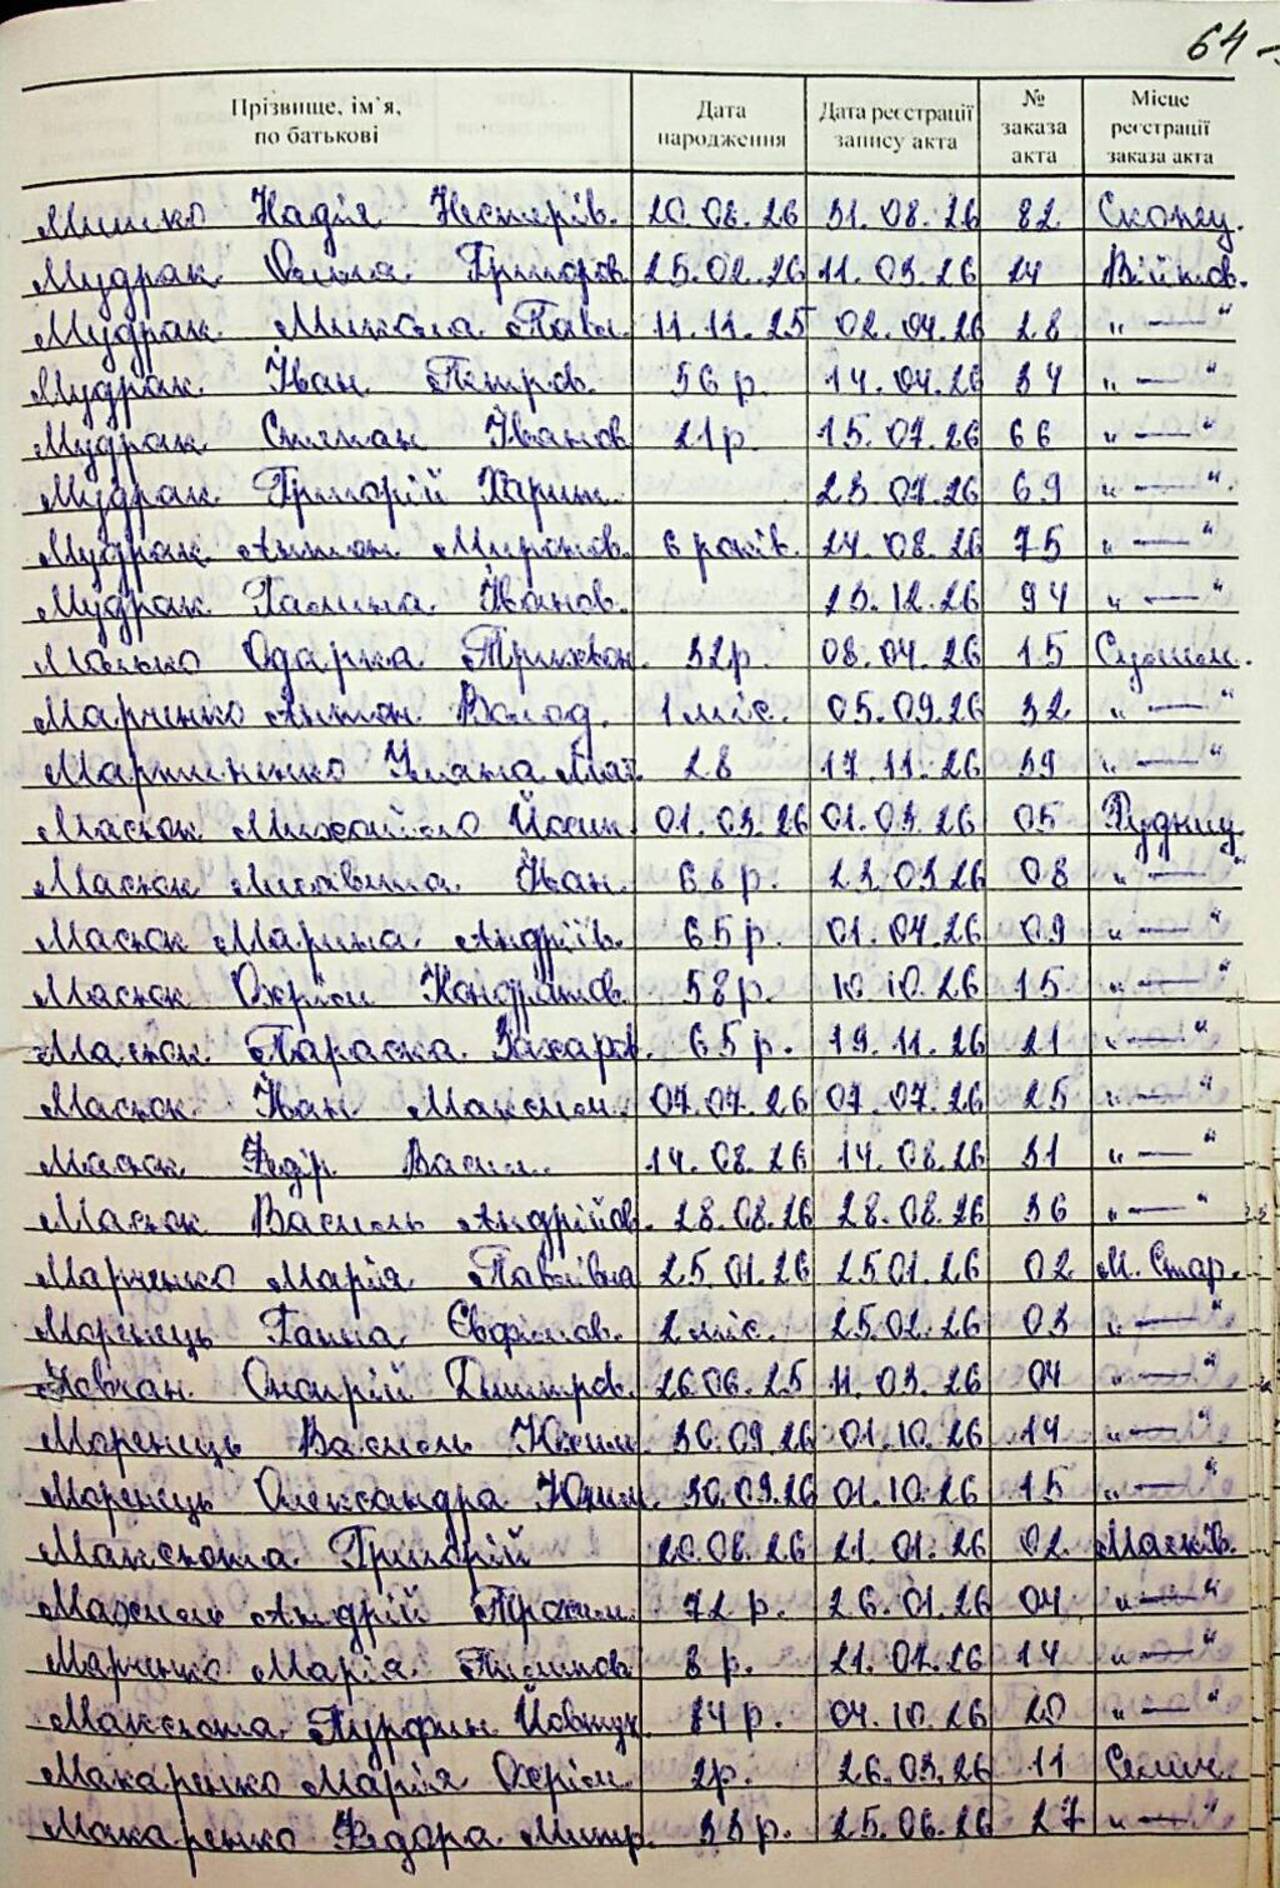 64
Прізвище, ім'я, по батькові | Дата народження | Дата реєстрації запису акта | № заказа акта | Місце реєстрації заказа акта
Мишко Надія Нестерів. 20.08.26 31.08.26 82 Скопец.
Мудрак Олена Григоров. 25.02.26 11.03.26 24 Війтов.
Мудрак Микола Павл. 11.11.25 02.04.26 28 „—“
Мудрак Іван Петров. 56 р. 14.04.26 34 „—“
Мудрак Степан Іванов 21 р. 15.07.26 66 „—“
Мудрак Григорій Харит. 23.07.26 69 „—“
Мудрак Антон Миронов. 6 років. 24.08.26 75 „—“
Мудрак Галина Іванов. 25.12.26 94 „—“
Одарка 32 р. 08.04.26 15
Марченко Антон Волод. 1 міс. 05.09.26 32 „—“
Мартиненко Уляна 28 17.11.26 39 „—“
Масюк Михайло Йосип. 01.03.26 01.03.26 05 Рудниц.
Масюк Іван. 68 р. 23.03.26 08 „—“
Масюк Марина Андріїв. 65 р. 01.04.26 09 „—“
Масюк Охрім Кондратов. 58 р. 10.10.26 15 „—“
Масюк Параска Захарів. 65 р. 19.11.26 21 „—“
Масюк Іван Максим. 07.07.26 07.07.26 25 „—“
Масюк Федір Васил. 14.08.26 14.08.26 31 „—“
Масюк Василь Андрійов. 28.08.26 28.08.26 36 „—“
Марченко Марія Павлівна 25.01.26 25.01.26 02 М. Стар.
Моренець Ганна Євфімов. 2 міс. 25.02.26 03 „—“
Онопрій Дмитров. 26.06.25 11.03.26 04 „—“
Моренець Василь Юхим. 30.09.26 01.10.26 14 „—“
Моренець Олександра Юхим. 30.09.26 01.10.26 15 „—“
Максюта Григорій 20.08.26 21.01.26 02 Масків.
Андрій Трохим. 72 р. 26.01.26 04 „—“
Марченко Марія Пилипов. 8 р. 21.07.26 14 „—“
Максюта 84 р. 04.10.26 20 „—“
Макаренко Марія Охрім. 2 р. 26.03.26 11
Макаренко Федора Митр. 33 р. 25.06.26 27 „—“